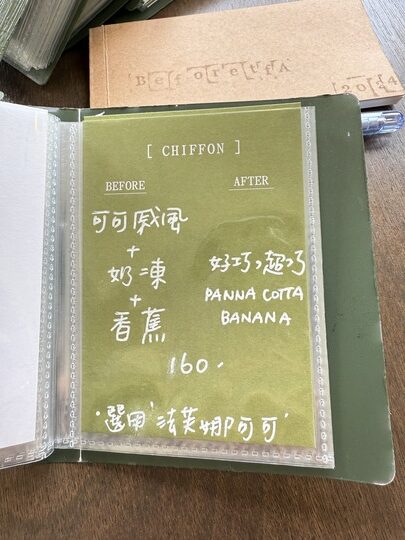 [ CHIFFON ]
BEFORE AFTER
可可戚風
+
奶凍
+
香蕉
好巧,超巧
PANNA COTTA
BANANA
160.
"選用"法芙娜可可"